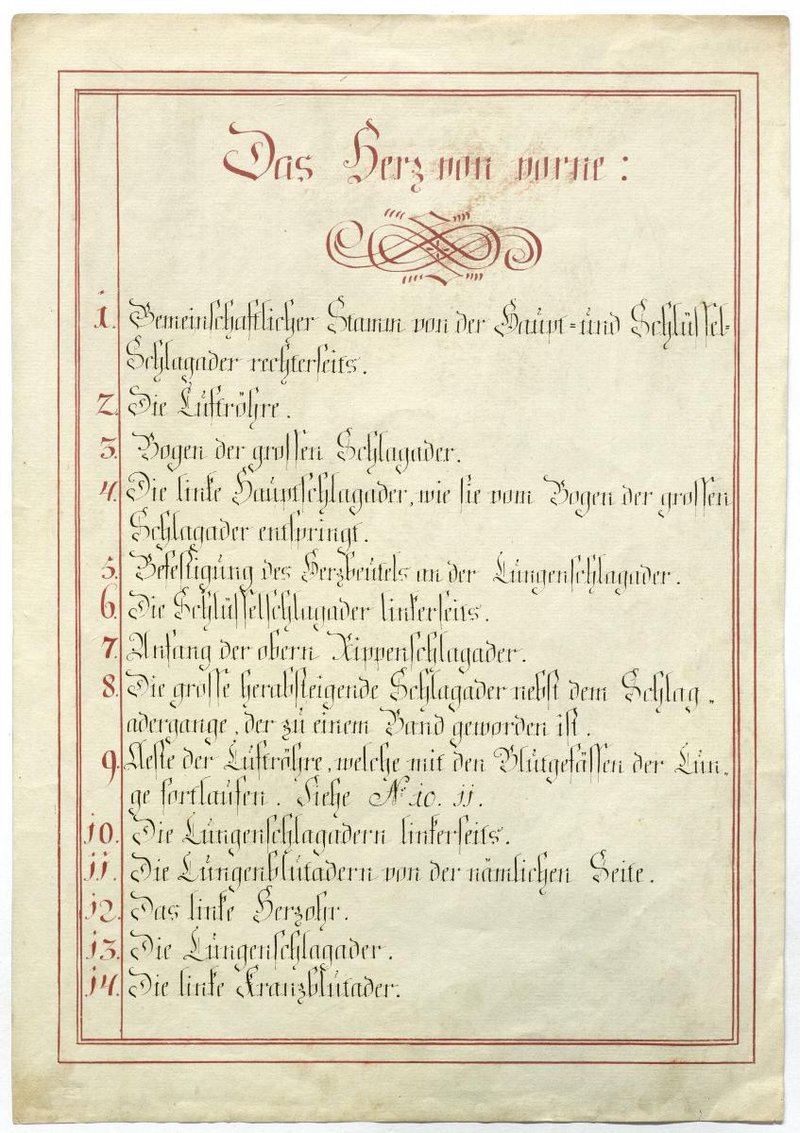 Das Herz von vorne:
1. Gemeinschaftlicher Stamm von der Haupt=und Schlüssel-
Schlagader rechterseits.
2. Die Luftröhre.
3. Bogen der grossen Schlagader.
4. Die linke Hauptschlagader, wie sie vom Bogen der grossen
Schlagader entspringt.
5. Befestigung des Herzbeutels an der Lungenschlagader.
6. Die Schlüsselschlagader linkerseits.
7. Anfang der obern Rippenschlagader.
8. Die grosse herabsteigende Schlagader nebst dem Schlag-
adergange, der zu einem Band geworden ist.
9. Aeste der Luftröhre, welche mit den Blutgefässen der Lun-
ge fortlaufen. Siehe No. 10. 11.
10. Die Lungenschlagadern linkerseits.
11. Die Lungenblutadern von der nämlichen Seite.
12. Das linke Herzohr.
13. Die Lungenschlagader.
14. Die linke Kranzblutader.